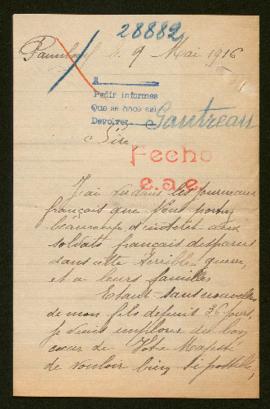 28882
le 9 Mai 1916
A
Pedir informes
Que se hace así
Devolver
Gautreau
Sire
Fecho
e.a.e.
J'ai lu dans les journaux
français que Vous portez
beaucoup d'intérêt aux
soldats français disparus
dans cette terrible guerre,
et à leurs familles
Etant sans nouvelles
de mon fils depuis 26 jours,
je viens implorer du bon
cœur de Votre Majesté
de vouloir bien, si possible,